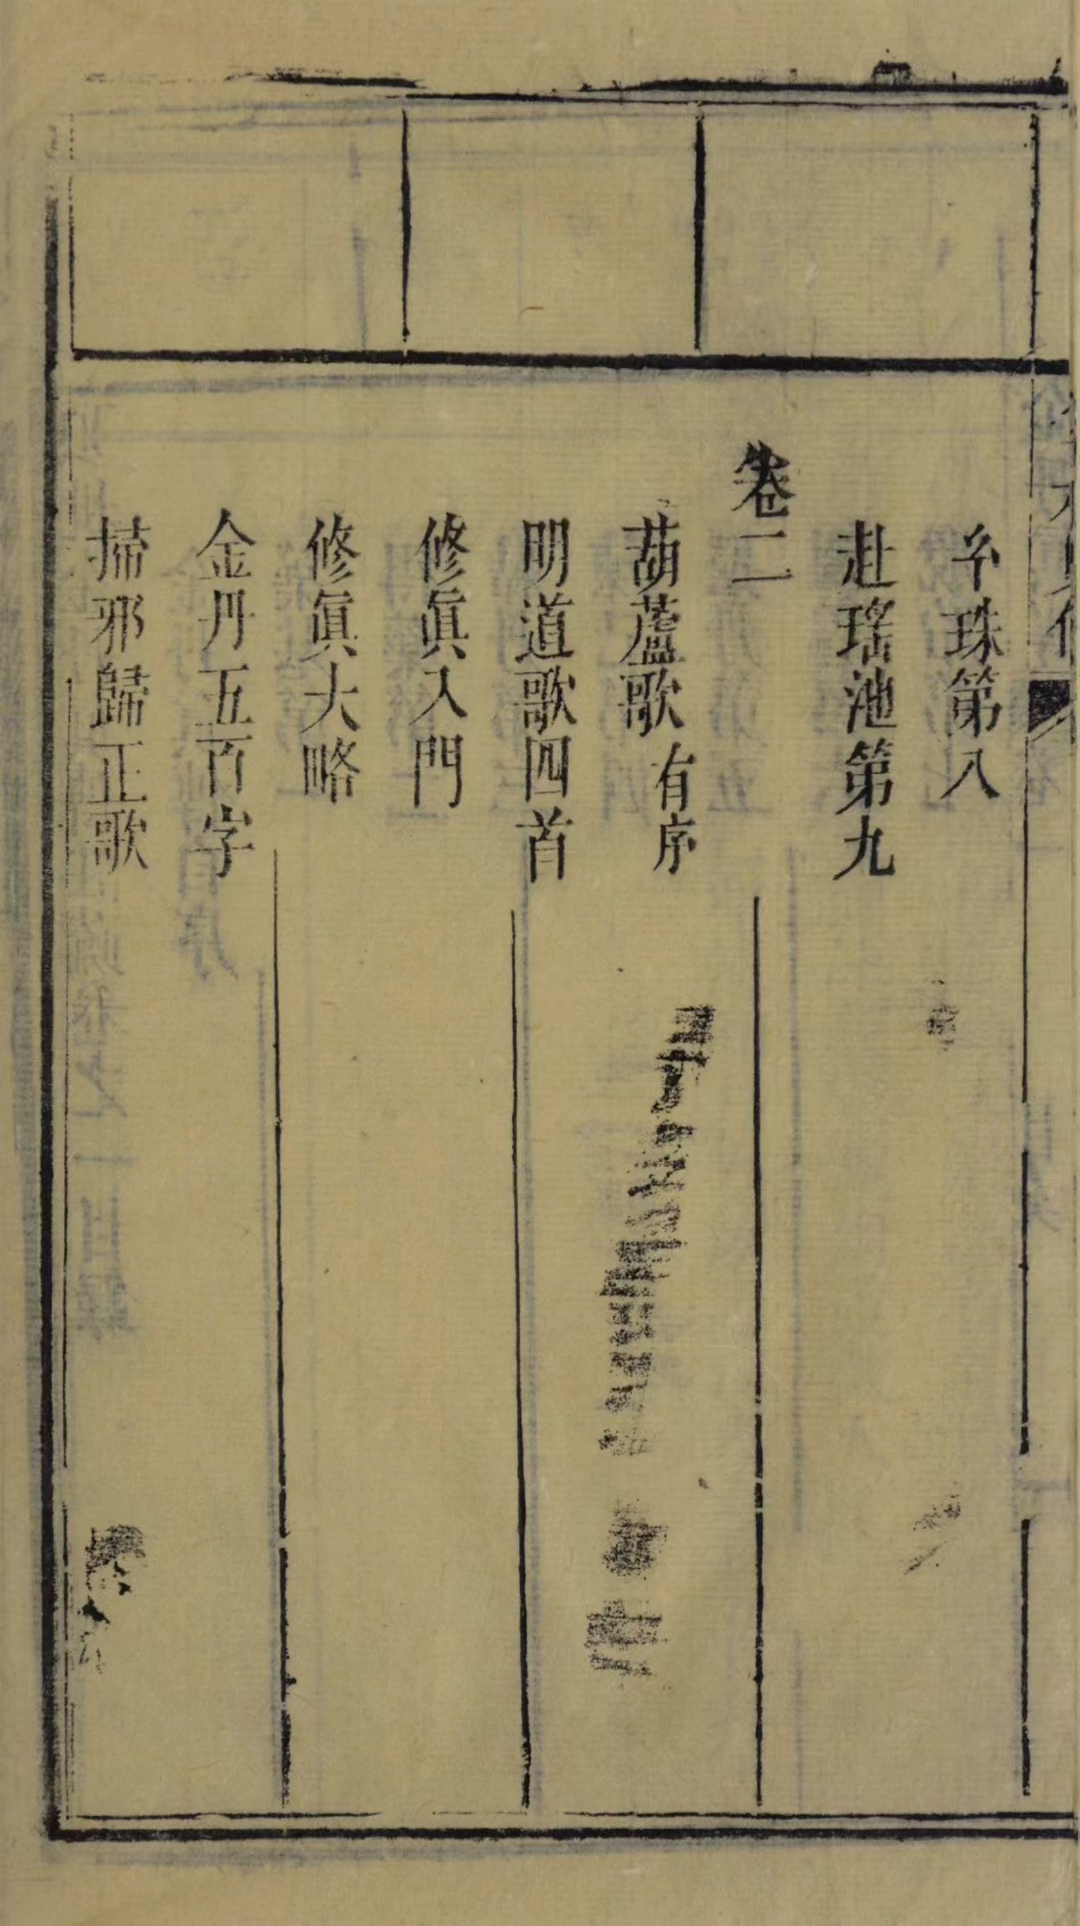 珠第八
赴瑤池第九
卷二
葫蘆歌 有序
明道歌四首
修眞入門
修眞大略
金丹五百字
掃邪歸正歌